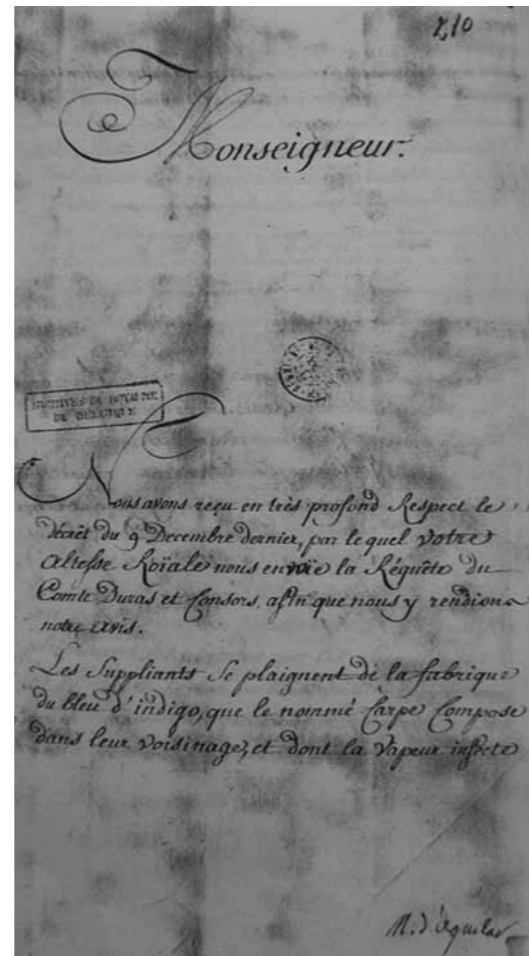 210
Monseigneur.
ARCHIVES DU ROYAUME
DE BELGIQUE
Nous avons reçu en très profond Respect le
décrèt du 9 Decembre dernier, par le quel Votre
Altesse Roïale nous envoïe la Réquête du
Comte Duras et Consors, afin que nous y rendions
notre avis.
Les Suppliants Se plaignent de la fabrique
du bleu d'indigo, que le nommé Carpe Compose
dans leur voisinage, et dont la Vapeur infecte
M. d'Aguilar